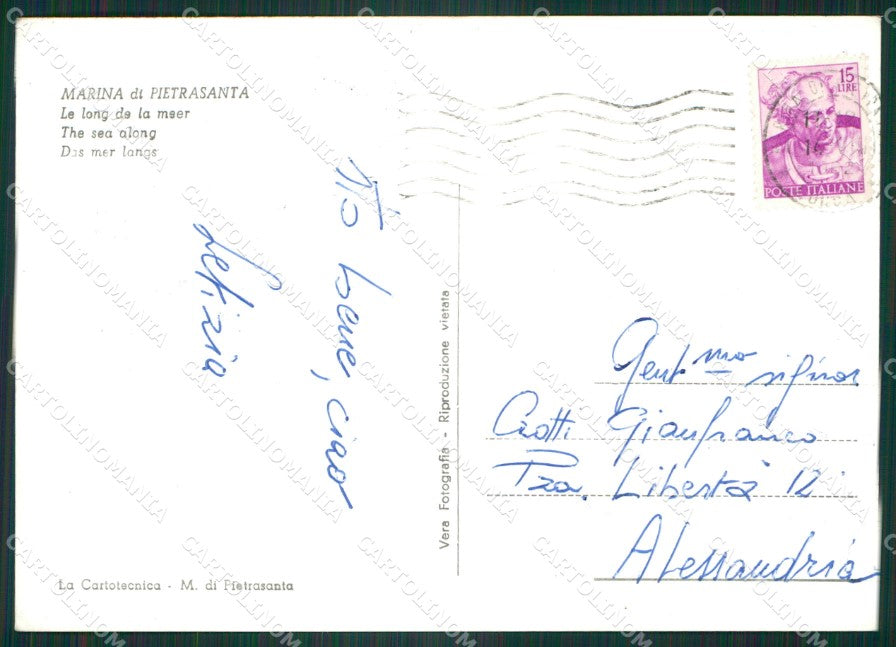 MARINA di PIETRASANTA
Le long de la meer
The sea along
Das mer langs
Sto bene, ciao
Letizia
Vera Fotografia - Riproduzione vietata
La Cartotecnica - M. di Pietrasanta
15
LIRE
POSTE ITALIANE
Gent.mo signor
Crotti Gianfranco
Pza. Libertà 12
Alessandria
CARTOLINOMANIA